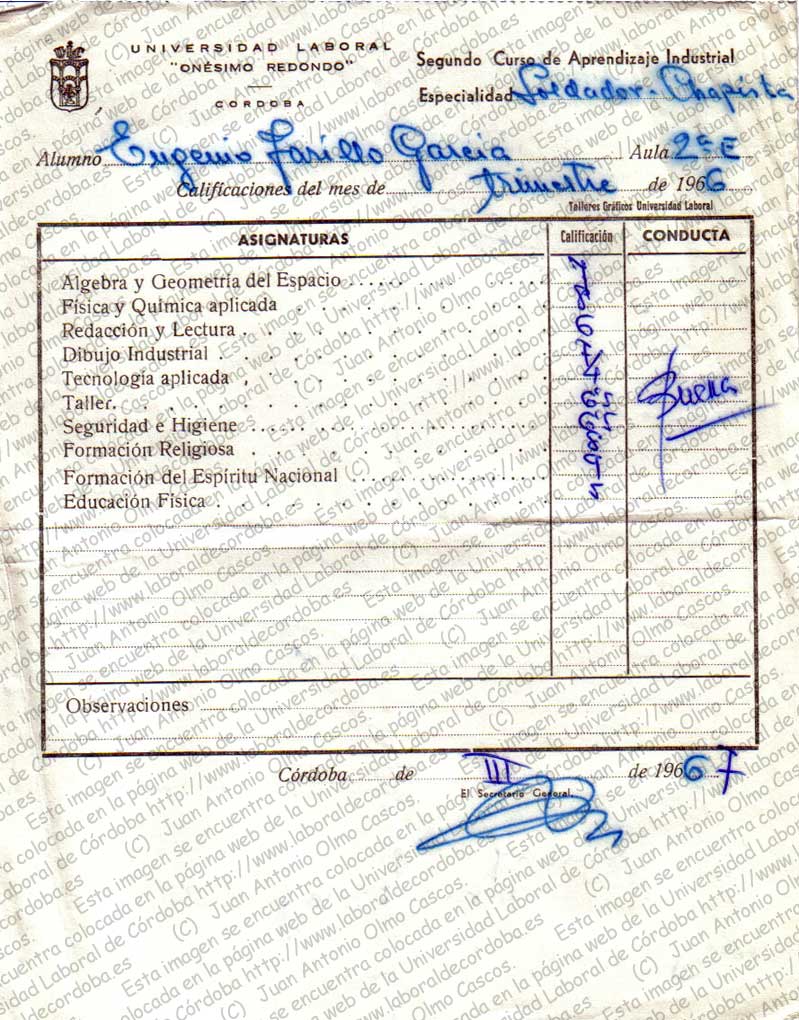 UNIVERSIDAD LABORAL
"ONÉSIMO REDONDO"
CÓRDOBA
Segundo Curso de Aprendizaje Industrial
Especialidad Soldador-Chapista
Alumno Eugenio Jarillo Garcia Aula 2º E
Calificaciones del mes de trimestre de 1966
Talleres Gráficos Universidad Laboral
ASIGNATURAS Calificación CONDUCTA
Algebra y Geometría del Espacio
Física y Química aplicada
Redacción y Lectura
Dibujo Industrial
Tecnología aplicada
Taller.
Buena
Seguridad e Higiene
Formación Religiosa
Formación del Espíritu Nacional
Educación Física
Observaciones
Córdoba de III de 1966 7
El Secretario General,
Esta imagen se encuentra colocada en la página web de la Universidad Laboral de Córdoba http://www.laboraldecordoba.es
(C) Juan Antonio Olmo Cascos.